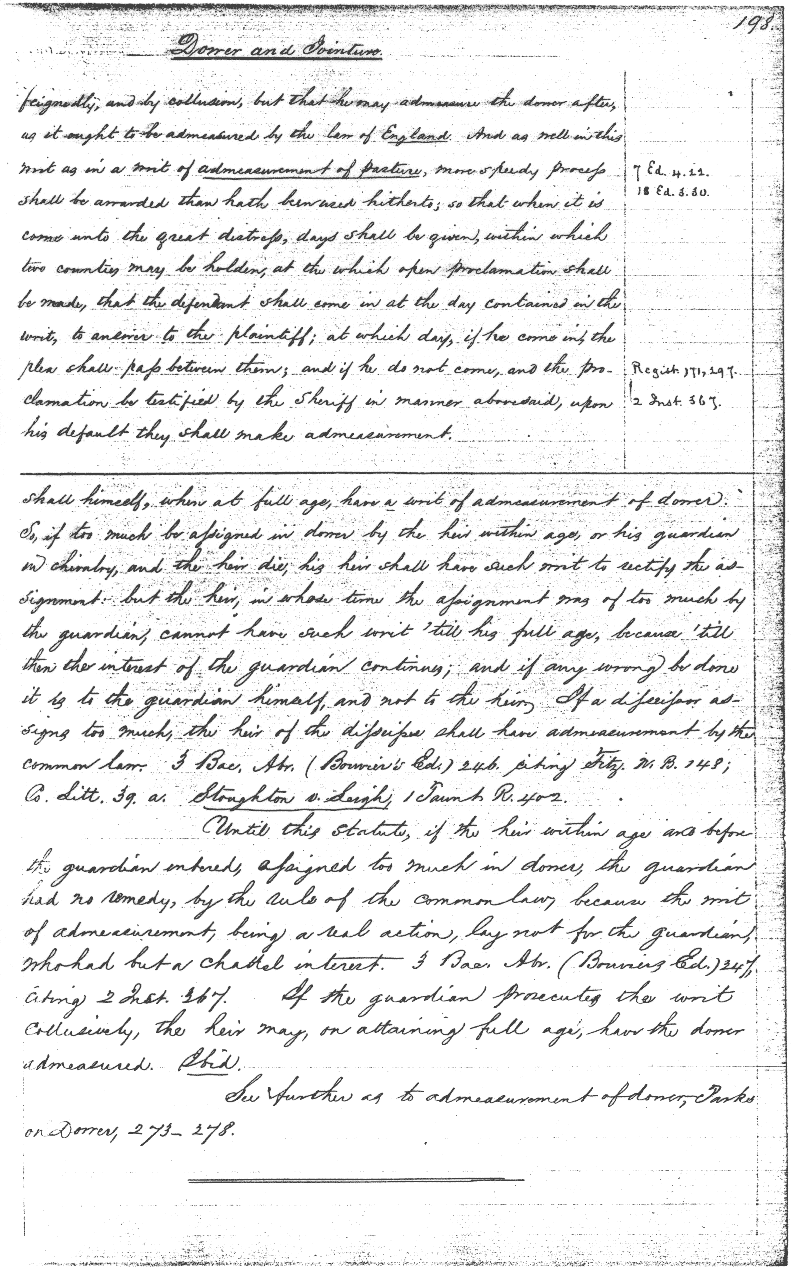 193.
Dower and Jointure.
feignedly, and by collusion, but that he may admeasure the dower after,
as it ought to be admeasured by the law of England. And as well in this
writ as in a writ of admeasurement of pasture, more speedy process
7 Ed. 4. 22.
shall be awarded than hath been used hitherto; so that when it is
18 Ed. 3. 30.
come unto the great distress, days shall be given, within which
two counties may be holden, at the which open proclamation shall
be made, that the defendant shall come in at the day contained in the
writ, to answer to the plaintiff; at which day, if he come in, the
plea shall pass between them; and if he do not come, and the pro-
Regist. 171, 297.
clamation be testified by the Sheriff in manner abovesaid, upon
2 Inst. 367.
his default they shall make admeasurement.
shall himself, when at full age, have a writ of admeasurement of dower.
So, if too much be assigned in dower by the heir within age, or his guardian
in chivalry, and the heir die, his heir shall have such writ to rectify the as-
signment: but the heir, in whose time the assignment was of too much by
the guardian, cannot have such writ 'till his full age, because 'till
then the interest of the guardian continues; and if any wrong be done
it is to the guardian himself, and not to the heir. If a disseisor as-
signs too much, the heir of the disseisee shall have admeasurement by the
common law. 3 Bac. Abr. (Bouvier's Ed.) 246. citing Fitz. N. B. 148;
Co. Litt. 39. a. Stoughton v. Leigh, 1 Taunt R. 402.
Until this statute, if the heir within age and before
the guardian entered, assigned too much in dower, the guardian
had no remedy, by the rule of the common law, because the writ
of admeasurement, being a real action, lay not for the guardian,
who had but a chattel interest. 3 Bac. Abr. (Bouviers Ed.) 247,
citing 2 Inst. 367. If the guardian prosecutes the writ
collusively, the heir may, on attaining full age, have the dower
admeasured. Ibid.
See further as to admeasurement of dower, Parke
on Dower, 273-278.